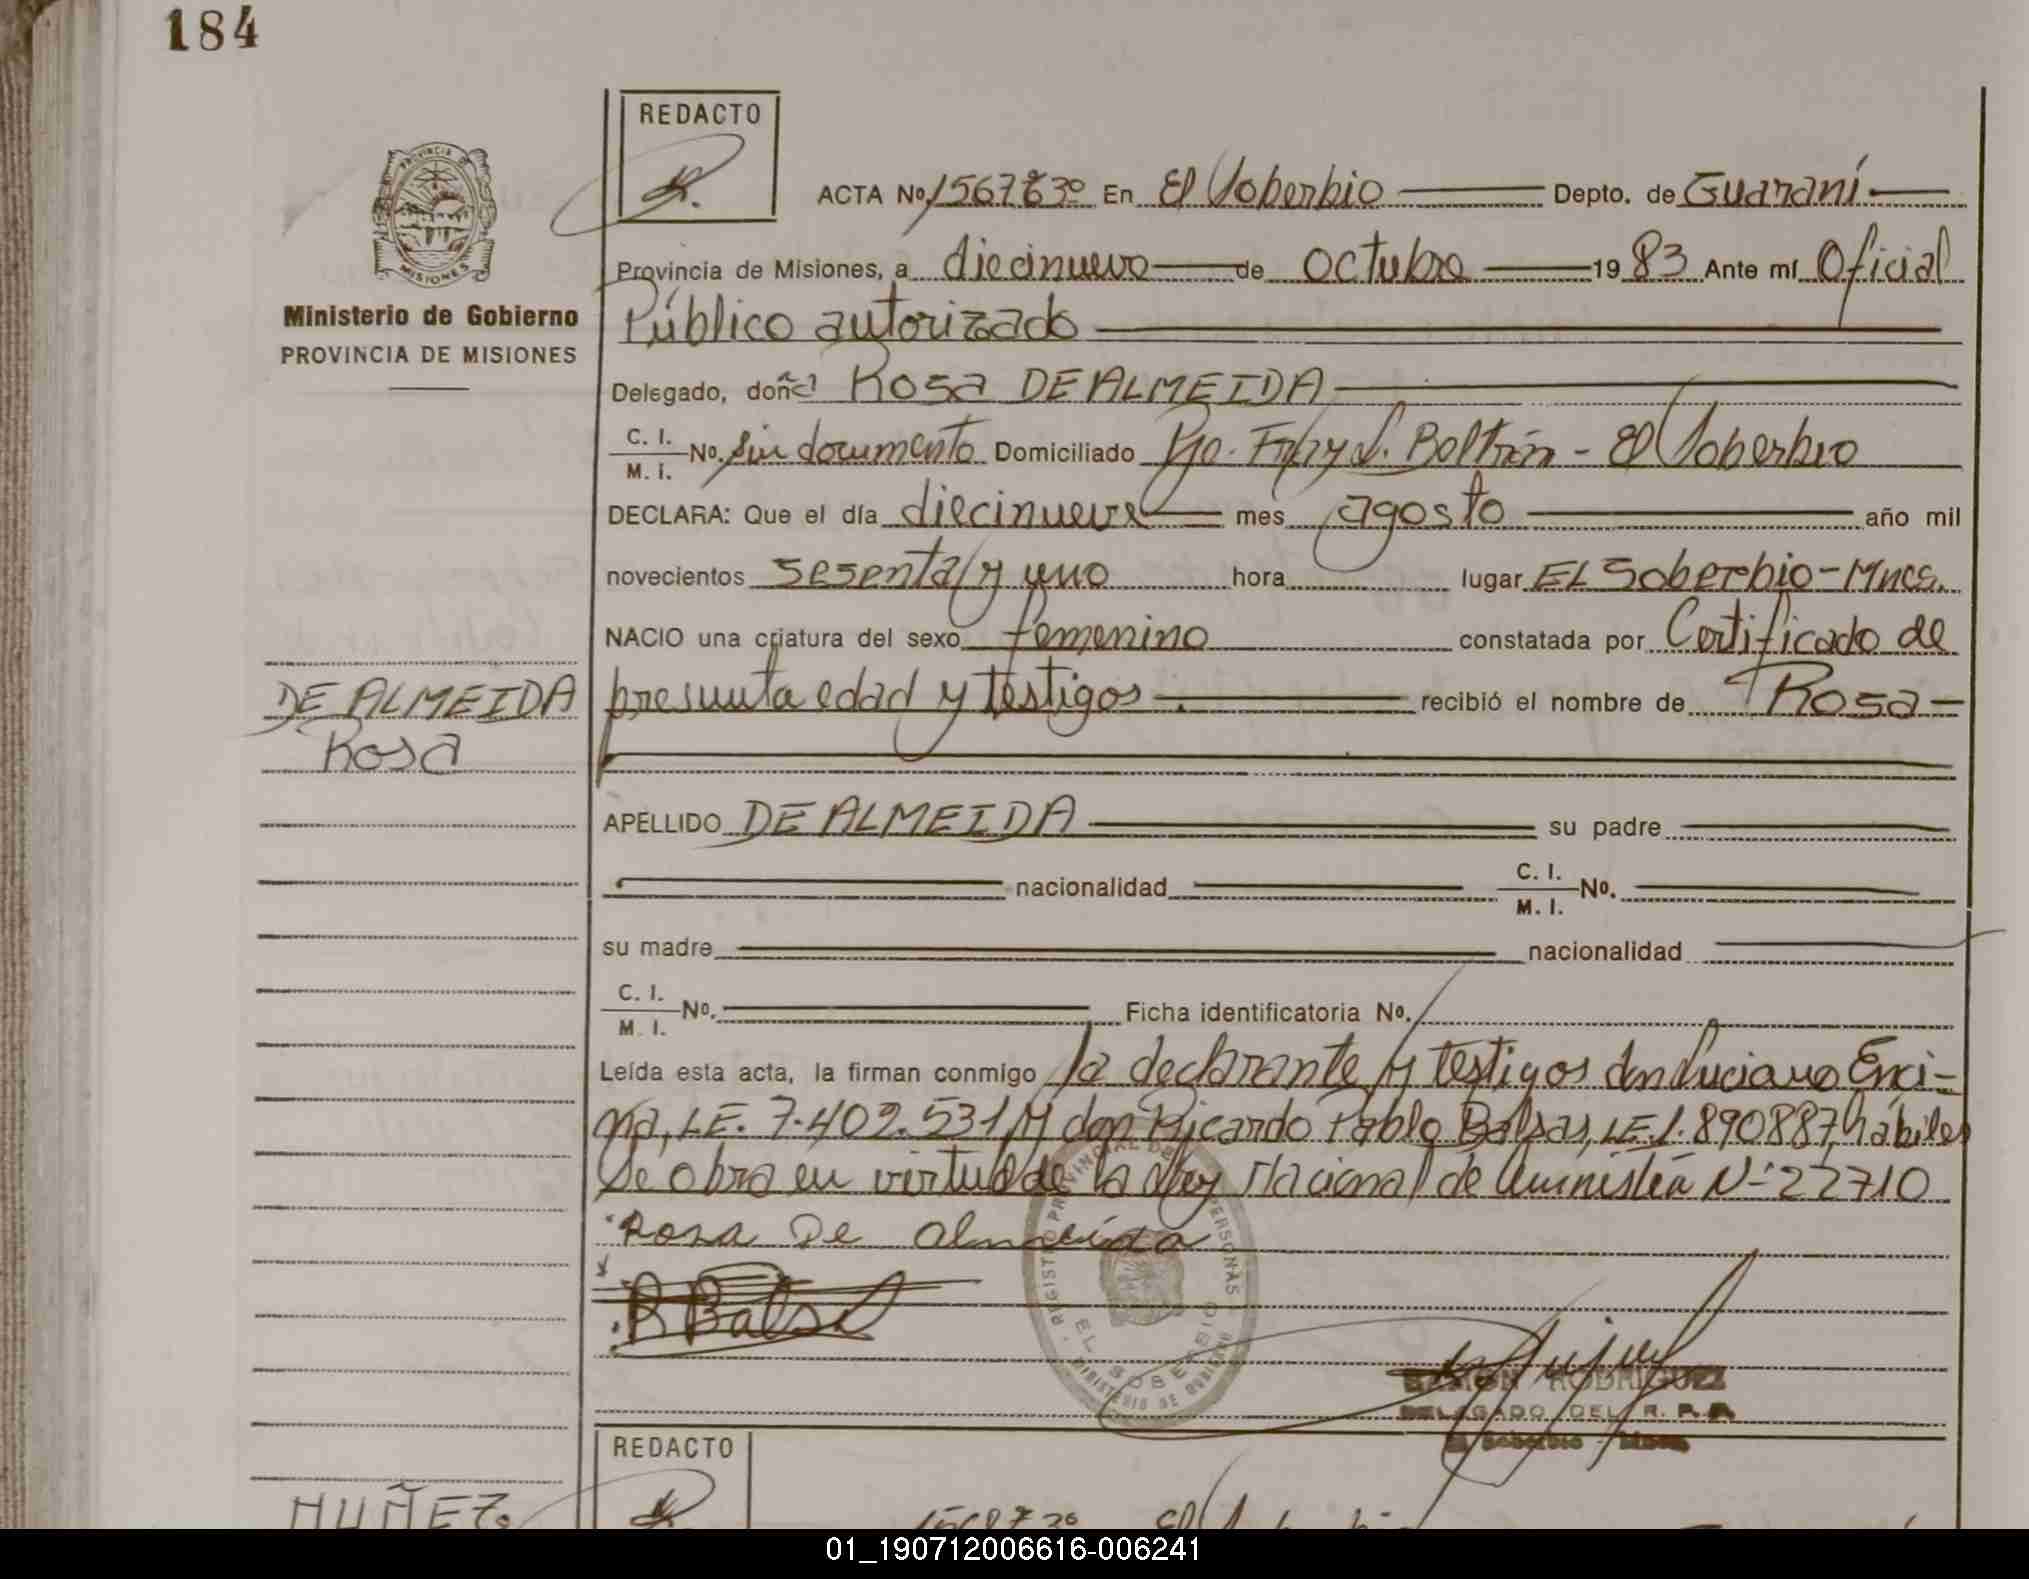 184
REDACTO
ACTA Nº 1567 Tº 3º En El Soberbio Depto. de Guaraní
PROVINCIA DE MISIONES
Provincia de Misiones, a diecinueve de octubre 19 83 Ante mí Oficial
Ministerio de Gobierno
PROVINCIA DE MISIONES
Público autorizado
Delegado, doña Rosa DE ALMEIDA
C. I.
M. I. Nº. sin documento Domiciliado Pje. Fray L. Beltrán - El Soberbio
DECLARA: Que el día diecinueve mes agosto año mil
novecientos sesenta y uno hora lugar EL Soberbio-Mnes.
NACIO una criatura del sexo femenino constatada por Certificado de
DE ALMEIDA
Rosa
presunta edad y testigos recibió el nombre de Rosa
APELLIDO DE ALMEIDA su padre
nacionalidad C. I.
M. I. Nº.
su madre nacionalidad
C. I.
M. I. Nº. Ficha identificatoria Nº.
Leída esta acta, la firman conmigo la declarante y testigos don Luciano Enci-
na, LE. 7.409.531 y don Ricardo Pablo Balsas, LE. 1.890887, hábiles
Se obra en virtud de la Ley Nacional de Amnistía Nº 22710
Rosa De Almeida
R Balsa
REGISTRO PROVINCIAL DE LAS PERSONAS
EL SOBERBIO
MINISTERIO DE GOBIERNO
RAMON RODRIGUEZ
DELEGADO DEL R. P. P.
El Soberbio - Mnes.
REDACTO
MUÑEZ
01_190712006616-006241